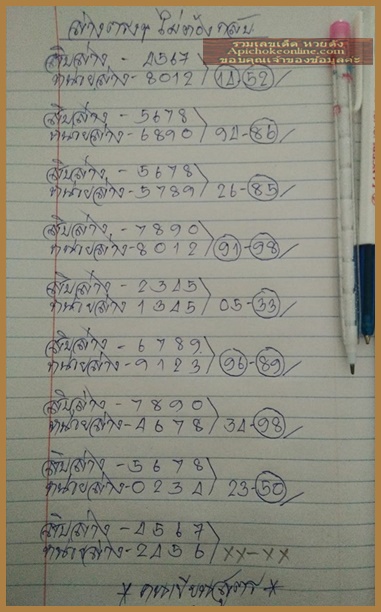 ล่างตรงๆ ไม่ต้องกลับ
รวมเลขเด็ด หวยดัง
Apichokeonline.com
ขอบคุณเจ้าของข้อมูลค่ะ
สิบล่าง - 4567
หน่วยล่าง - 8012 14-52
สิบล่าง - 5678
หน่วยล่าง - 6890 94-86
สิบล่าง - 5678
หน่วยล่าง - 5789 26-85
สิบล่าง - 7890
หน่วยล่าง - 8012 91-98
สิบล่าง - 2345
หน่วยล่าง 1345 05-33
สิบล่าง - 6789
หน่วยล่าง - 9123 96-89
สิบล่าง - 7890
หน่วยล่าง - 4678 34-98
สิบล่าง - 5678
หน่วยล่าง - 0234 23-50
สิบล่าง - 4567
หน่วยล่าง - 2456 xx-xx
* คนเขียนสูตร *